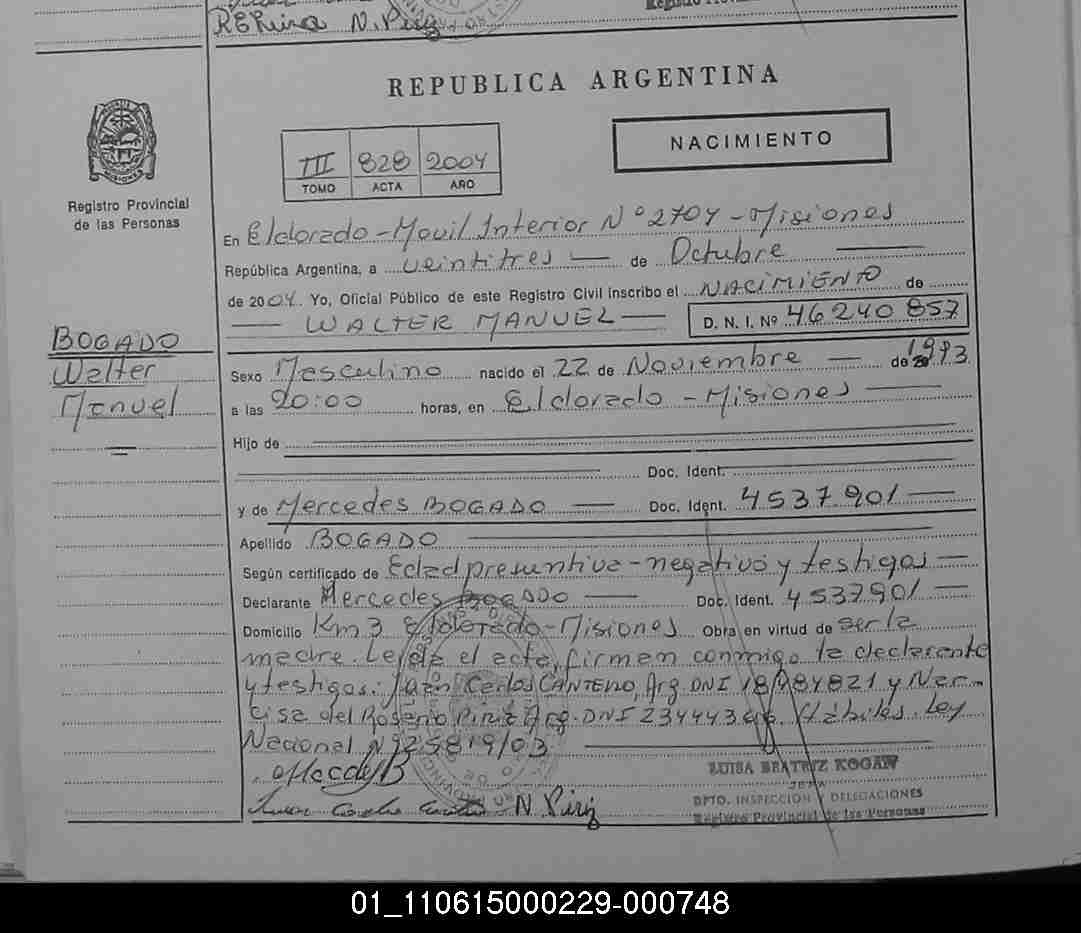 REPUBLICA ARGENTINA
NACIMIENTO
III 828 2004
TOMO ACTA AÑO
Registro Provincial
de las Personas
En Eldorado - Movil Interior N° 2704 - Misiones
República Argentina, a veintitres — de Octubre —
de 2004. Yo, Oficial Público de este Registro Civil inscribo el NACIMIENTO de
— WALTER MANUEL — D. N. I. Nº 46240857
BOGADO
Walter
Manuel
Sexo Masculino nacido el 22 de Noviembre — de 1993
a las 20:00 horas, en Eldorado - Misiones —
Hijo de
Doc. Ident.
y de Mercedes BOGADO — Doc. Ident. 4537901 —
Apellido BOGADO
Según certificado de Edad presuntiva - negativo y testigos —
Declarante Mercedes BOGADO — Doc. Ident. 4537901 —
Domicilio Km 3 Eldorado - Misiones Obra en virtud de ser la
madre. Leída el acta, firman conmigo la declarante
y testigos: Juan Carlos CANTERO, Arg. DNI y Nar-
cisa del Rosario Piriz Arg. DNI Hábiles. Ley
Nacional Nº 25819/03
N. Piriz
LUISA BEATRIZ KOGAN
JEFA
DPTO. INSPECCION Y DELEGACIONES
Registro Provincial de las Personas
01_110615000229-000748